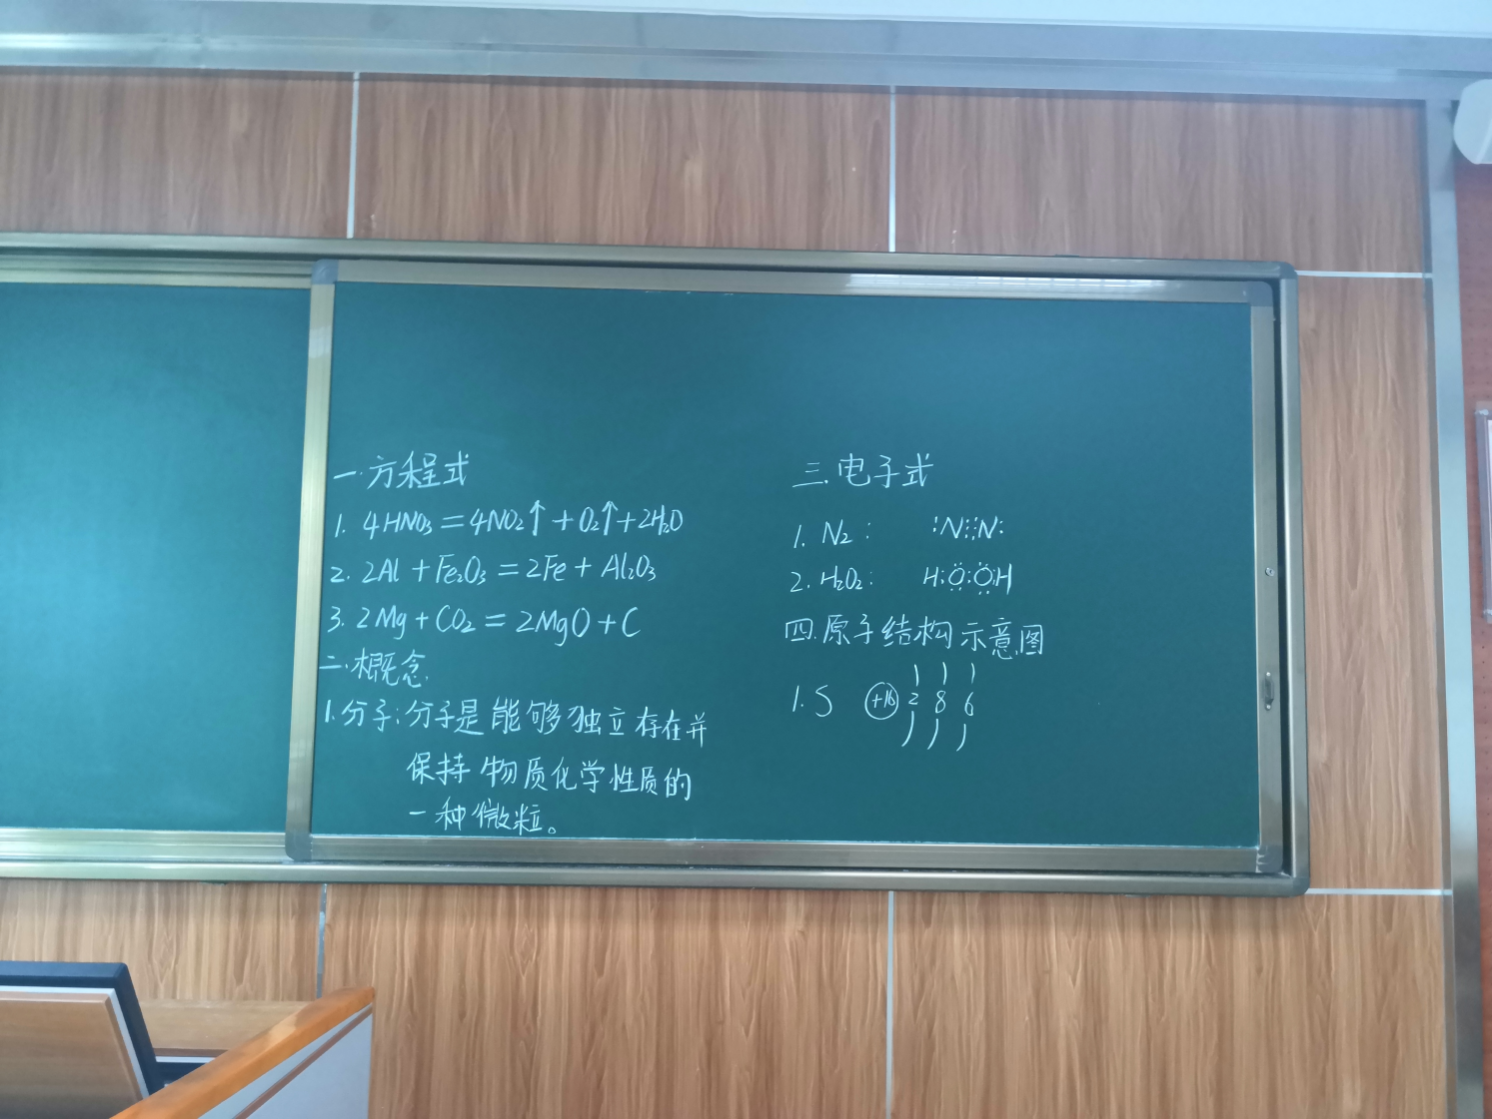 一.方程式
1. 4HNO₃=4NO₂↑+O₂↑+2H₂O
2. 2Al+Fe₂O₃=2Fe+Al₂O₃
3. 2Mg+CO₂=2MgO+C
二.概念
1.分子:分子是能够独立存在并
保持物质化学性质的
一种微粒。
三.电子式
1. N₂: :N⋮⋮N:
2. H₂O₂: H:Ö:Ö:H
四.原子结构示意图
1. S +16 2 8 6